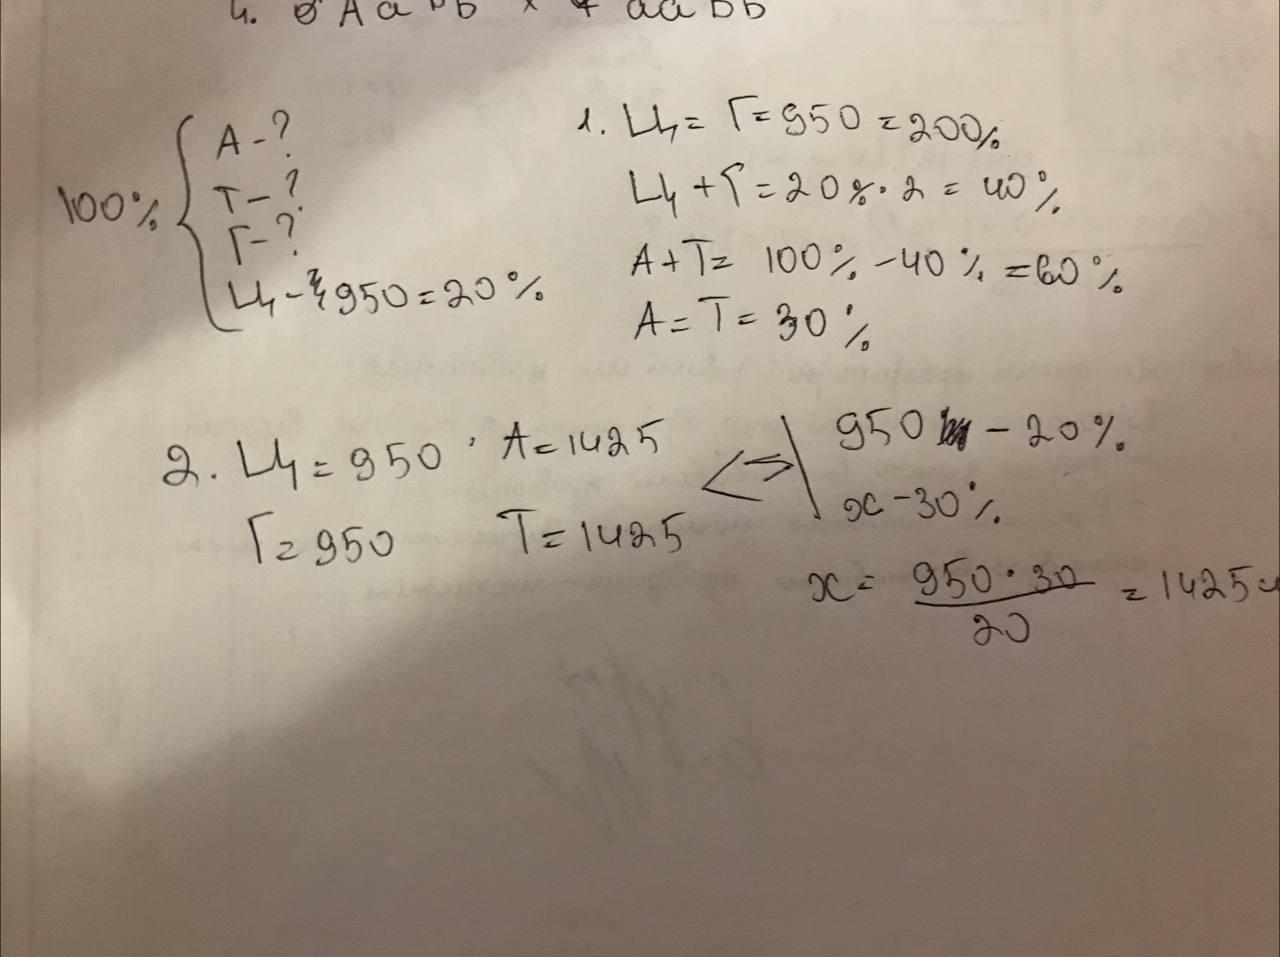 4. ♂ A a B b × ♀ a a b b
100%
A - ?
T - ?
Г - ?
Ц - 950 = 20%
1. Ц = Г = 950 = 200%
Ц + Г = 20% · 2 = 40%
A + T = 100% - 40% = 60%
A = T = 30%
2. Ц = 950, A = 1425
Г = 950 T = 1425
<=>
950 - 20%
x - 30%
x = 950 · 30 / 20 = 1425